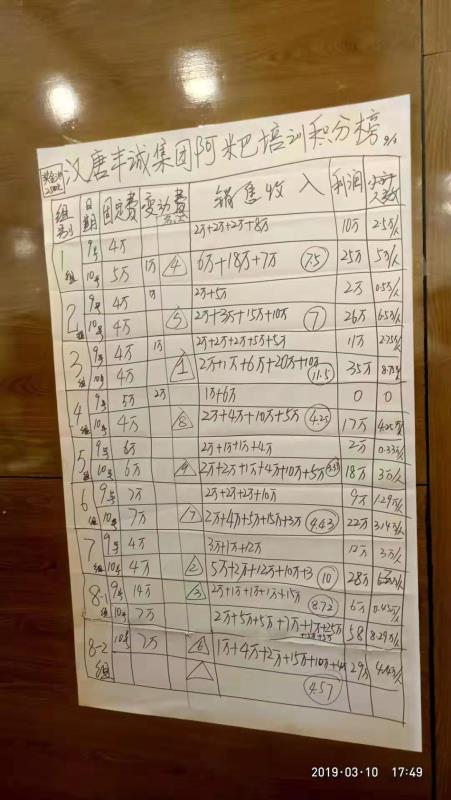 汉唐丰诚集团阿米巴培训积分榜
组别 日期 固定费 变动费 销售收入 利润 人数
1组 9号 4万 2万+2万+2万+8万 10万 2.5万/人
10号 5万 1万 4 6万+18万+7万 7.5 25万 5万/人
2组 9号 4万 1万 2万+5万 2万 0.5万/人
10号 4万 5 2万+3万+15万+10万 7 26万 6.5万/人
3组 9号 4万 1万 2万+2万+2万+5万+5万 11万 2.75万/人
10号 4万 1 2万+1万+6万+20万+10万 11.5 35万 8.75万/人
4组 9号 5万 2万 1万+6万 0 0
10号 4万 8 2万+4万+10万+5万 4.25 17万 4.25万/人
5组 9号 6万 2万+1万+1万+4万 2万 0.33万/人
10号 6万 9 2万+2万+1万+4万+10万+5万 3.33 18万 3万/人
6组 9号 7万 2万+2万+2万+10万 9万 1.29万/人
10号 7万 7 2万+4万+5万+15万+3万 4.43 22万 3.14万/人
7组 9号 4万 3万+1万+12万 12万 3万/人
10号 4万 2 5万+2万+12万+10万+3 10 28万
8-1组 9号 14万 3 2万+1万+1万+1万+15万 8.72 6万 0.43万/人
10号 7万 2万+5万+5万+7万+1万+25万 58 8.29万/人
8-2组 10号 7万 6 1万+4万+2万+15万+10万+4万 29万 4.14万/人
4.57
2019·03·10 17:49